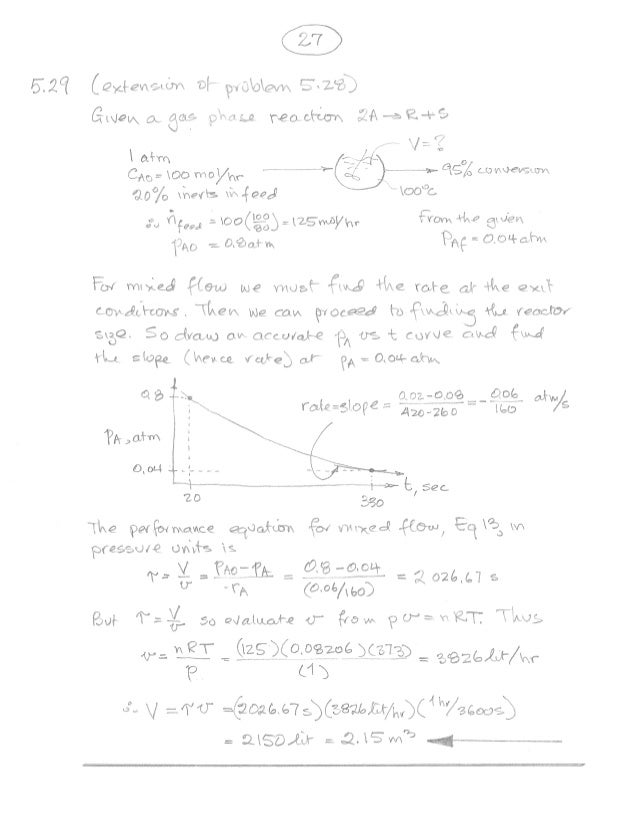 27
5.29 (extension of problem 5.28)
Given a gas phase reaction 2A → R + S
1 atm
CA0 = 100 mol/hr
20% inerts in feed
∴ ṅfeed = 100(100/80) = 125 mol/hr
pA0 = 0.8 atm
V = ?
95% conversion
100°C
From the given
PAf = 0.04 atm
For mixed flow we must find the rate at the exit
conditions. Then we can proceed to finding the reactor
size. So draw an accurate pA vs t curve and find
the slope (hence rate) at pA = 0.04 atm
0.8
rate = slope = (0.02 - 0.08)/(420 - 260) = - 0.06/160 atm/s
PA, atm
0.04
t, sec
20
380
The performance equation for mixed flow, Eq 13, in
pressure units is
τ = V/υ = (PA0 - PA)/-rA = (0.8 - 0.04)/(0.06/160) = 2026.67 s
But τ = V/υ so evaluate υ from pυ = nRT. Thus
υ = nRT/p = (125)(0.08206)(373)/(1) = 3826 lit/hr
∴ V = τυ = (2026.67 s)(3826 lit/hr)(1 hr/3600 s)
= 2150 lit = 2.15 m³